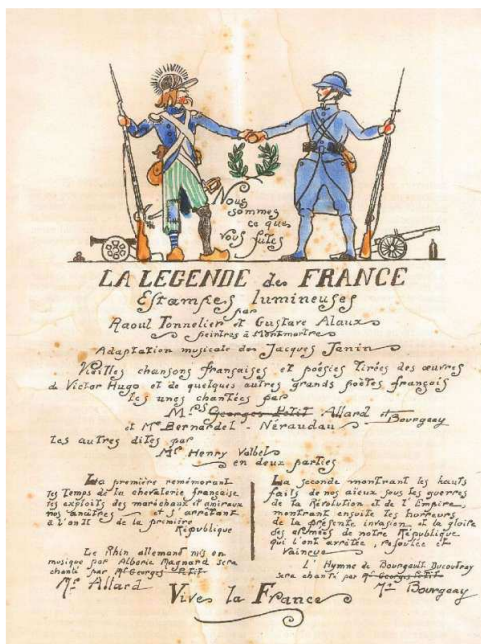 Nous
sommes
ce que
Vous fûtes
LA LEGENDE des FRANCE
Estampes lumineuses
par
Raoul Tonnelier et Gustave Alaux
peintres à Montmartre
Adaptation musicale des Jacques Janin
Vieilles chansons françaises et poésies tirées des œuvres
de Victor Hugo et de quelques autres grands poètes français
les unes chantées par
Mrs Georges Petit Allard et Bourgeay
et Me Bernardel-Néraudau
les autres dites par
Me Henry Valbel
en deux parties
La première remémorant
les Temps de la chevalerie française
les exploits des maréchaux et amiraux
nos ancêtres et s'arrêtant
à l'an II de la première
République
Le Rhin allemand mis en
musique par Alberic Magnard sera
chanté par Mr Georges Petit
Mr Allard
La seconde montrant les hauts
faits de nos aïeux sous les guerres
de la Révolution et de l'Empire
montrant ensuite les horreurs
de la présente invasion et la gloire
des armées de notre République
qui l'ont arrêtée, refoulée et
vaincue
L'Hymne de Bourgault Ducoudray
sera chanté par Mr Georges Petit
Mr Bourgeay
Vive la France